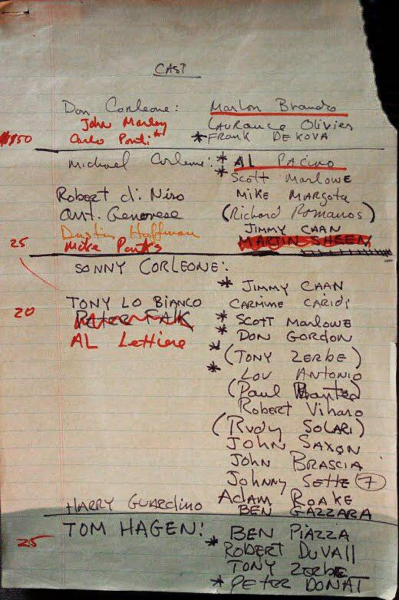 CAST
Don Corleone: Marlon Brando
John Marley Laurence Olivier
$150 Carlo Ponti * * FRANK DE KOVA
Michael Corleone: * AL PACINO
* Scott Marlowe
Robert di Niro Mike Margota
Ant. Genovese (Richard Romanos)
Dustin Hoffman JIMMY CAAN
25 Mike Parks MARTIN SHEEN
SONNY CORLEONE:
* JIMMY CAAN
TONY LO BIANCO CARMINE CARIDI
20 Peter FALK * SCOTT MARLOWE
AL Lettiere * DON GORDON
* (TONY ZERBE)
* LOU ANTONIO
(Paul )
Robert Viharo
(Rudy SOLARI)
JOHN SAXON
JOHN BRASCIA
Johnny SETTE 7
Adam ROAKE
HARRY GUARDINO BEN GAZZARA
TOM HAGEN: BEN PIAZZA
25 * ROBERT DUVALL
TONY ZERBE
* PETER DONAT